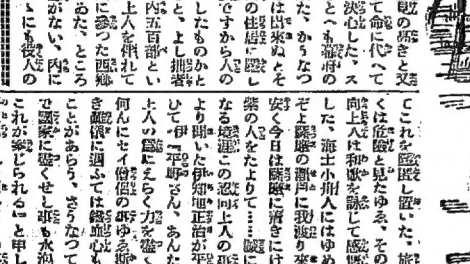 見の高きと又
て命に代へて
決心した、ス
とへも幕府の
た、かうなつ
は出來ぬとそ
の住居に隱し
ですから人の
したものかと
と、よし拙者
内五百部とい
上人を伴れて
に參つた西郷
めた、ところ
がない、内に
にも役人の
てこれを隱匿し置いた、旅
くは危險と見たゆゑ、その
向上人は和歌を詠じて感慨
した、海士小舟人にはゆめ
ぞよ薩摩の瀬戸に我渡り來
安く今日は薩摩に着きにけ
藥の人をたよりて……誠に
なる境涯この忍向上人の事
より聞いた伊知地正治が平
いて伊『平野さん、あんた
上人の爲にえらく力を盡く
何んにセイ僧侶の事ゆゑ斯
き戯儀に遇ふては鐵血心も
ことがあらう、さうなつて
で國家に盡くせし事も水泡
これが案じられる』と申し